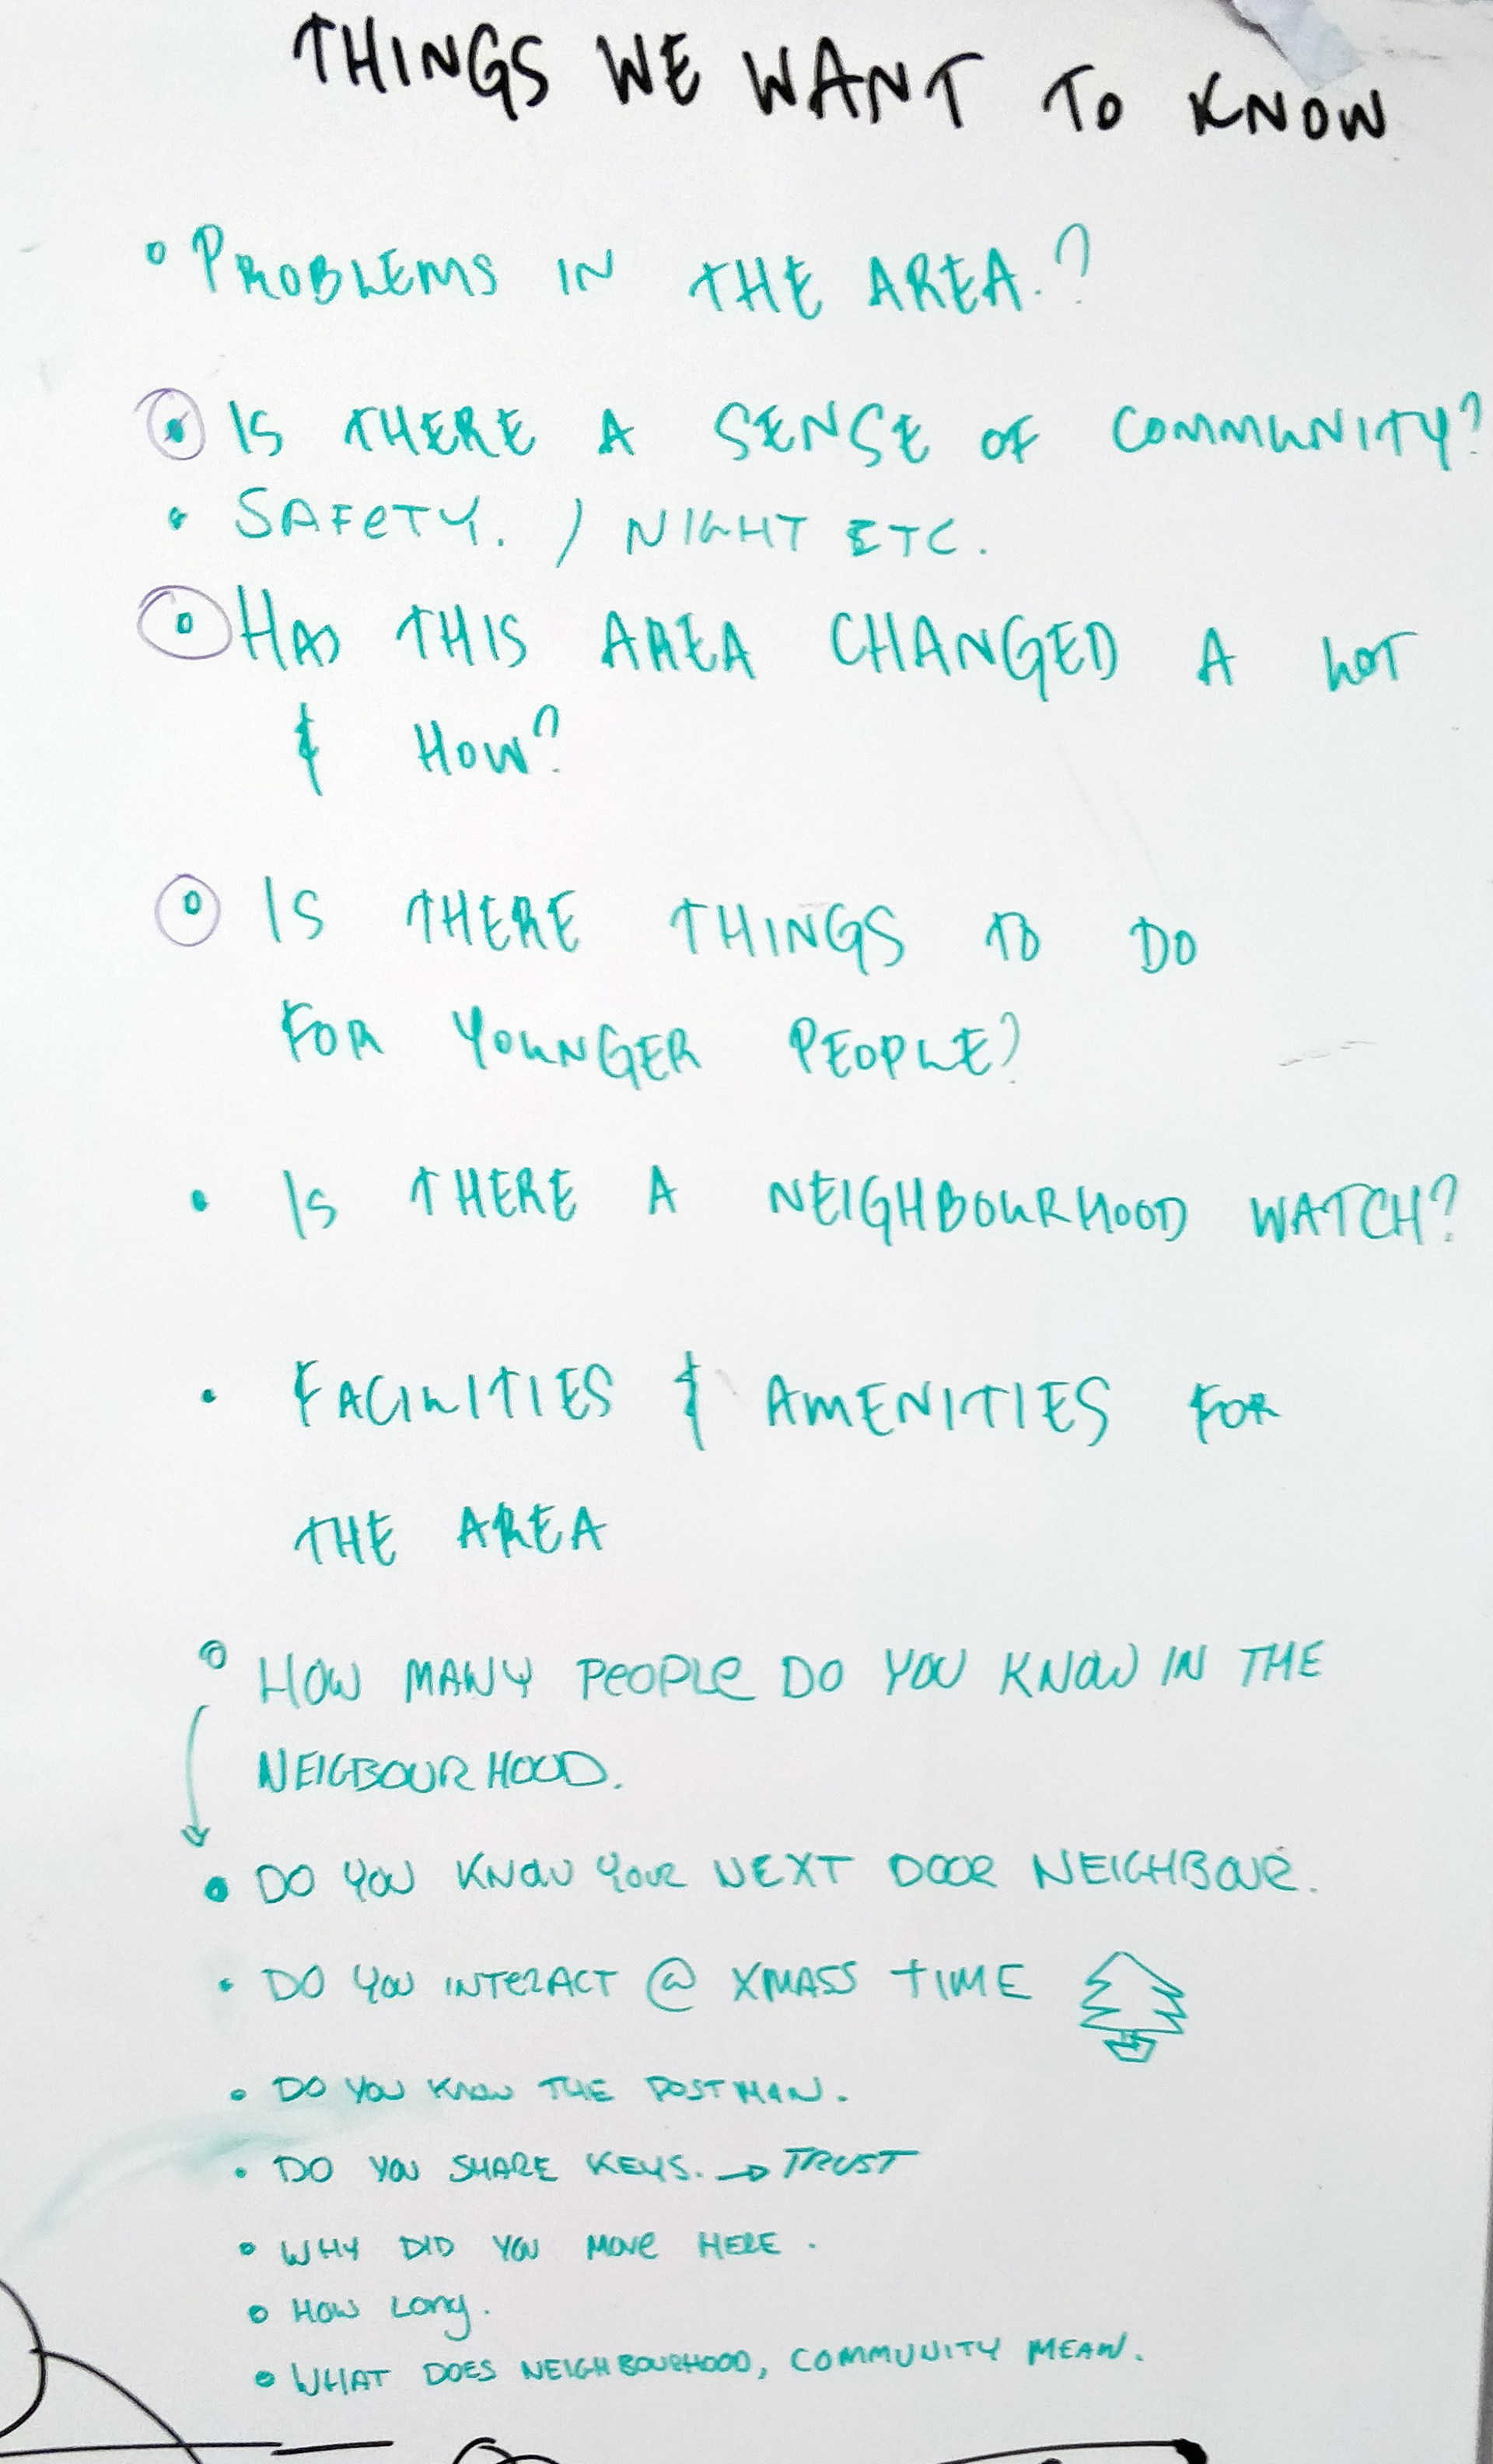 THINGS WE WANT TO KNOW
PROBLEMS IN THE AREA.?
IS THERE A SENSE OF COMMUNITY?
SAFETY. / NIGHT ETC.
HAS THIS AREA CHANGED A LOT
& HOW?
IS THERE THINGS TO DO
FOR YOUNGER PEOPLE?
IS THERE A NEIGHBOURHOOD WATCH?
FACILITIES & AMENITIES FOR
THE AREA
HOW MANY PEOPLE DO YOU KNOW IN THE
NEIGBOURHOOD.
DO YOU KNOW YOUR NEXT DOOR NEIGHBOUR.
DO YOU INTERACT @ XMASS TIME
DO YOU KNOW THE POSTMAN.
DO YOU SHARE KEYS. → TRUST
WHY DID YOU MOVE HERE.
HOW LONG.
WHAT DOES NEIGHBOURHOOD, COMMUNITY MEAN.